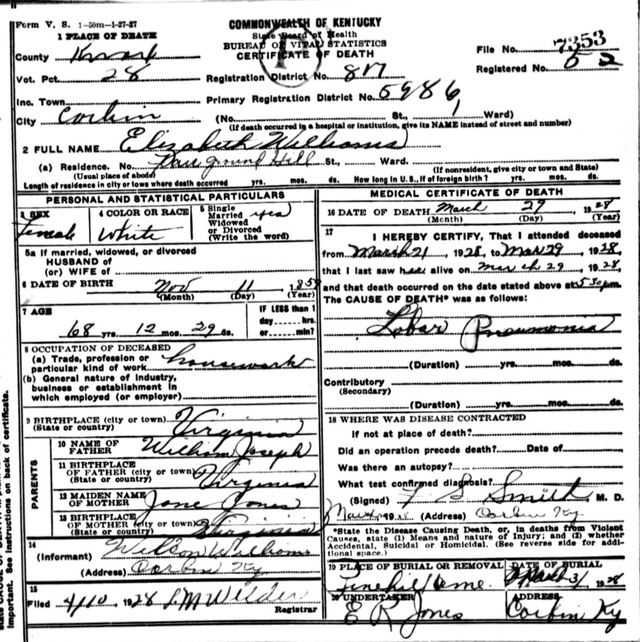 Form V. S. 1-50m-1-27-27
COMMONWEALTH OF KENTUCKY
State Board of Health
BUREAU OF VITAL STATISTICS
CERTIFICATE OF DEATH
1 PLACE OF DEATH
County Knox
File No. 7353
Vot. Pct. 28
Registration District No. 817
Registered No.
Inc. Town
Primary Registration District No. 5986
City Corbin (No. St., Ward)
(If death occurred in a hospital or institution, give its NAME instead of street and number)
2 FULL NAME Elizabeth Williams
(a) Residence. No. Fair ground Hill St., Ward.
(Usual place of abode) (If nonresident, give city or town and State)
Length of residence in city or town where death occurred yrs. mos. ds. How long in U. S., if of foreign birth? yrs. mos. ds.
PERSONAL AND STATISTICAL PARTICULARS
3 SEX
4 COLOR OR RACE
5 Single
Married yes
Widowed
or Divorced
(Write the word)
Female White
5a If married, widowed, or divorced
HUSBAND of
(or) WIFE of
6 DATE OF BIRTH Nov 11 1858
(Month) (Day) (Year)
7 AGE
IF LESS than 1
day hrs.
or min?
68 yrs. 12 mos. 29 ds.
8 OCCUPATION OF DECEASED
(a) Trade, profession or
particular kind of work housework
(b) General nature of industry,
business or establishment in
which employed (or employer)
9 BIRTHPLACE (city or town) Virginia
(State or country)
PARENTS
10 NAME OF
FATHER William Joseph
11 BIRTHPLACE
OF FATHER (city or town) Virginia
(State or country)
12 MAIDEN NAME
OF MOTHER Jane Jones
13 BIRTHPLACE
OF MOTHER (city or town) Virginia
(State or country)
14
(Informant) Wilson Williams
(Address) Corbin Ky
15
Filed 4/10 1928 L M Wilder
Registrar
MEDICAL CERTIFICATE OF DEATH
16 DATE OF DEATH March 29 1928
(Month) (Day) (Year)
17
I HEREBY CERTIFY, That I attended deceased
from March 21 1928 to Mar 29 1928,
that I last saw her alive on March 29 1928,
and that death occurred on the date stated above at 5:30 pm.
The CAUSE OF DEATH* was as follows:
Lobar Pneumonia
(Duration) yrs. mos. ds.
Contributory
(Secondary)
(Duration) yrs. mos. ds.
18 WHERE WAS DISEASE CONTRACTED
If not at place of death?
Did an operation precede death? Date of
Was there an autopsy?
What test confirmed diagnosis?
(Signed) L S Smith M. D.
19 (Address) Corbin Ky.
*State the Disease Causing Death, or, in deaths from Violent
Causes, state (1) Means and nature of Injury; and (2) whether
Accidental, Suicidal or Homicidal. (See reverse side for addi-
tional space.)
19 PLACE OF BURIAL OR REMOVAL DATE OF BURIAL
Pine hill Cme. March 31 1928
20 UNDERTAKER ADDRESS
E R Jones Corbin Ky
Important. See instructions on back of certificate.